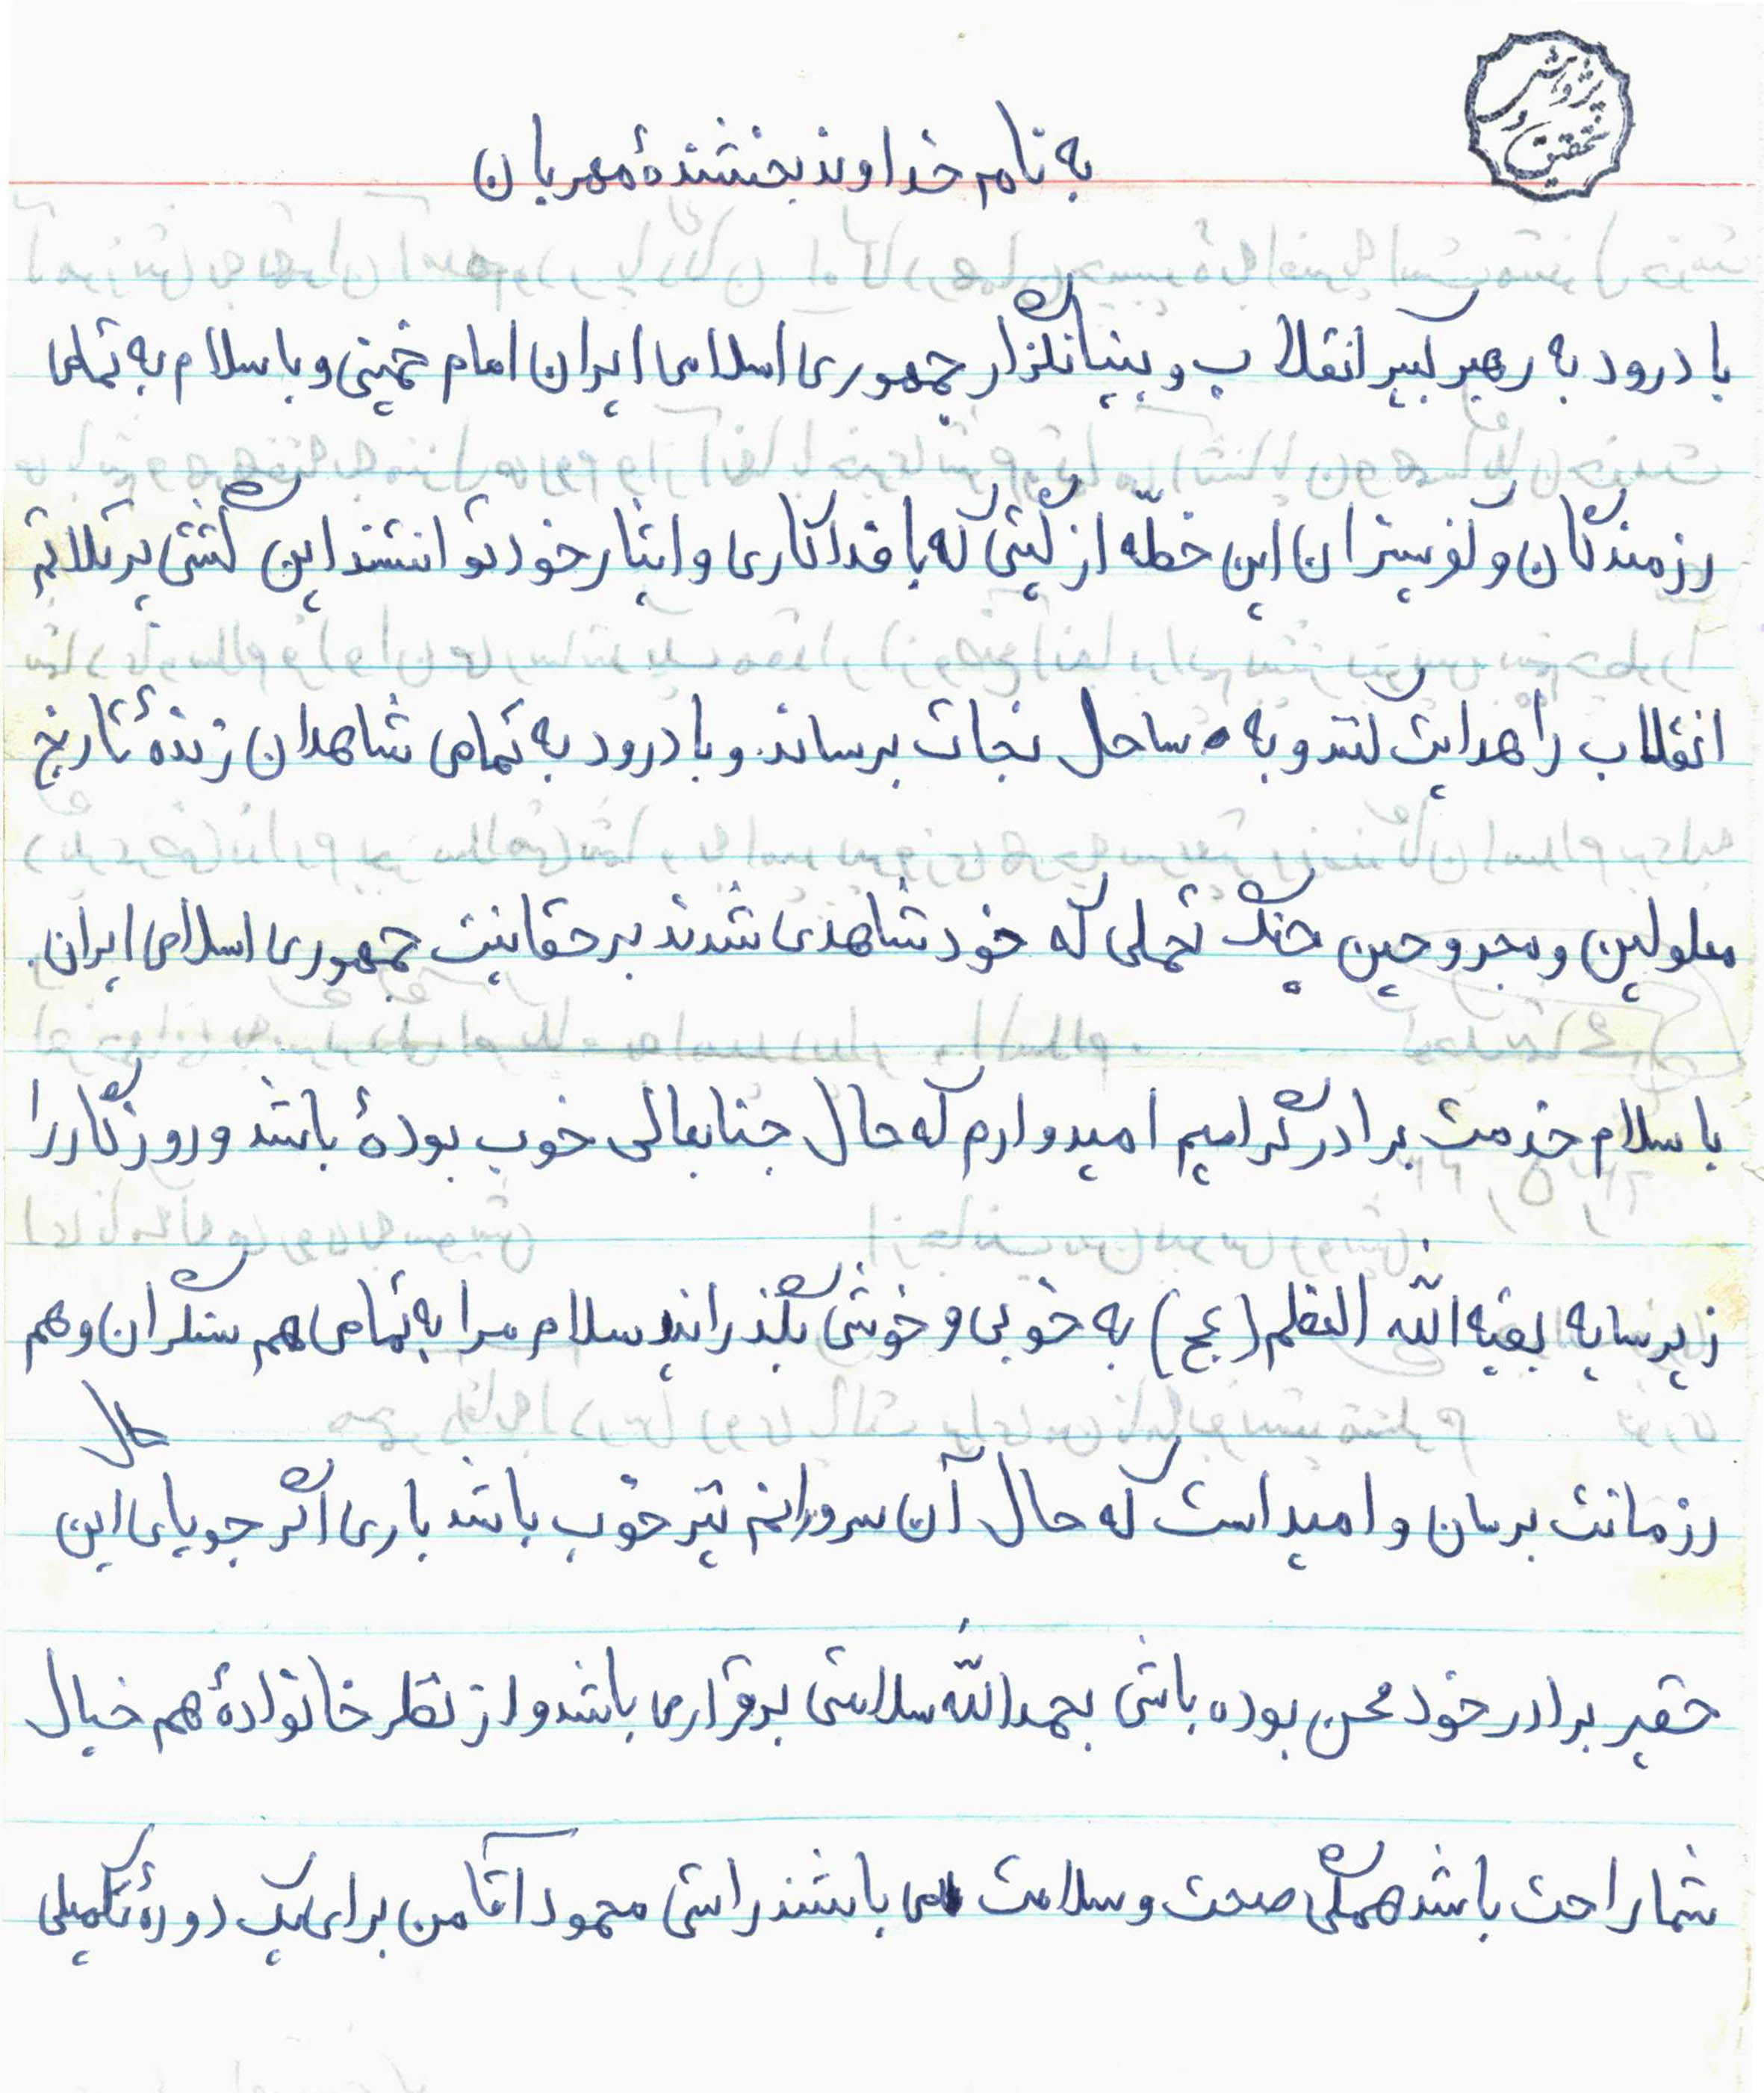 پژوهش
و
تحقیق
به نام خداوند بخشندۀ مهربان
با درود به رهبر کبیر انقلاب و بنیانگزار جمهوری اسلامی ایران امام خمینی و با سلام به تمامی
رزمندگان و کفرستیزان این خطّه از گیتی که با فداکاری و ایثار خود توانستند این کشتی پر تلاتم
انقلاب را هدایت کنند و به ساحل نجات برسانند. و با درود به تمامی شاهدان زندۀ تاریخ
معلولین و مجروحین جنگ تحملی که خود شاهدی شدند بر حقانیت جمهوری اسلامی ایران.
با سلام خدمت برادر گرامیم امیدوارم که حال جنابعالی خوب بودۀ باشد و روزگار را
زیر سایه بقیه الله العظم (عج) به خوبی و خوشی بگذرانید سلام مرا به تمامی هم سنگران و هم
رزمانت برسان و امید است که حال آن سرورانم نیز خوب باشد باری اگر جویای این حال
حقیر برادر خود محسن بوده باشی بحمدالله سلامتی برقرار می باشد و از نظر خانوادۀ هم خیال
شما راحت باشد همگی صحت و سلامت می باشند راستی محمود آقا من برای یک دورۀ تکمیلی